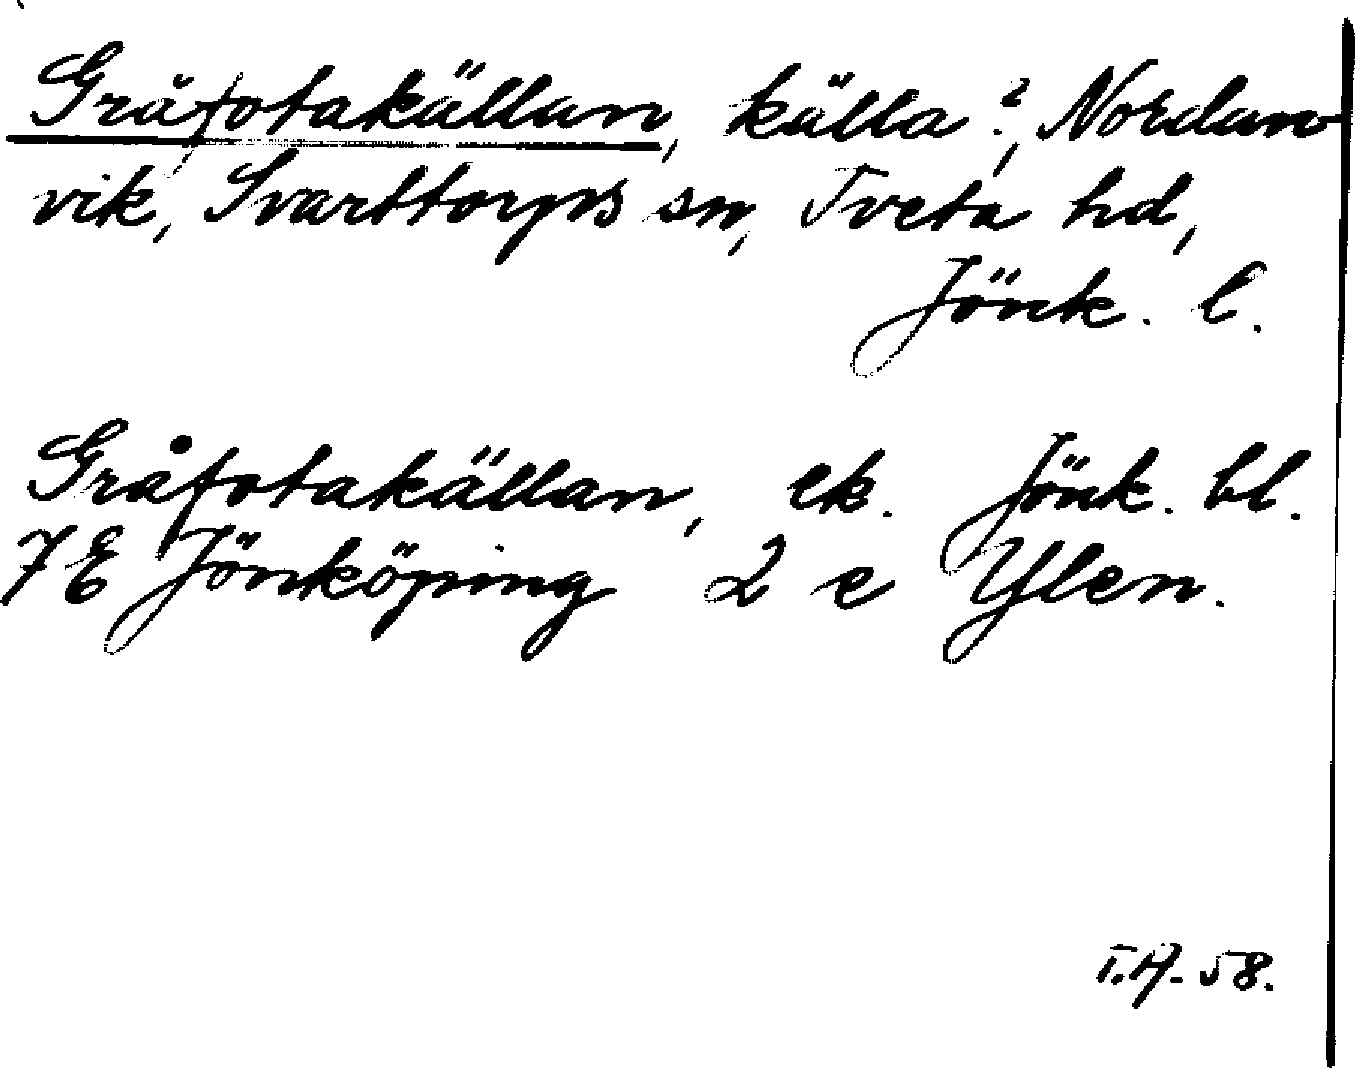 Gråfotakällan, källa?, Nordan-
vik, Svarttorps sn, Tveta hd,
Jönk. l.
Gråfotakällan, ek. Jönk. bl.
7E Jönköping 2 e Ylen.
T.A. 58.